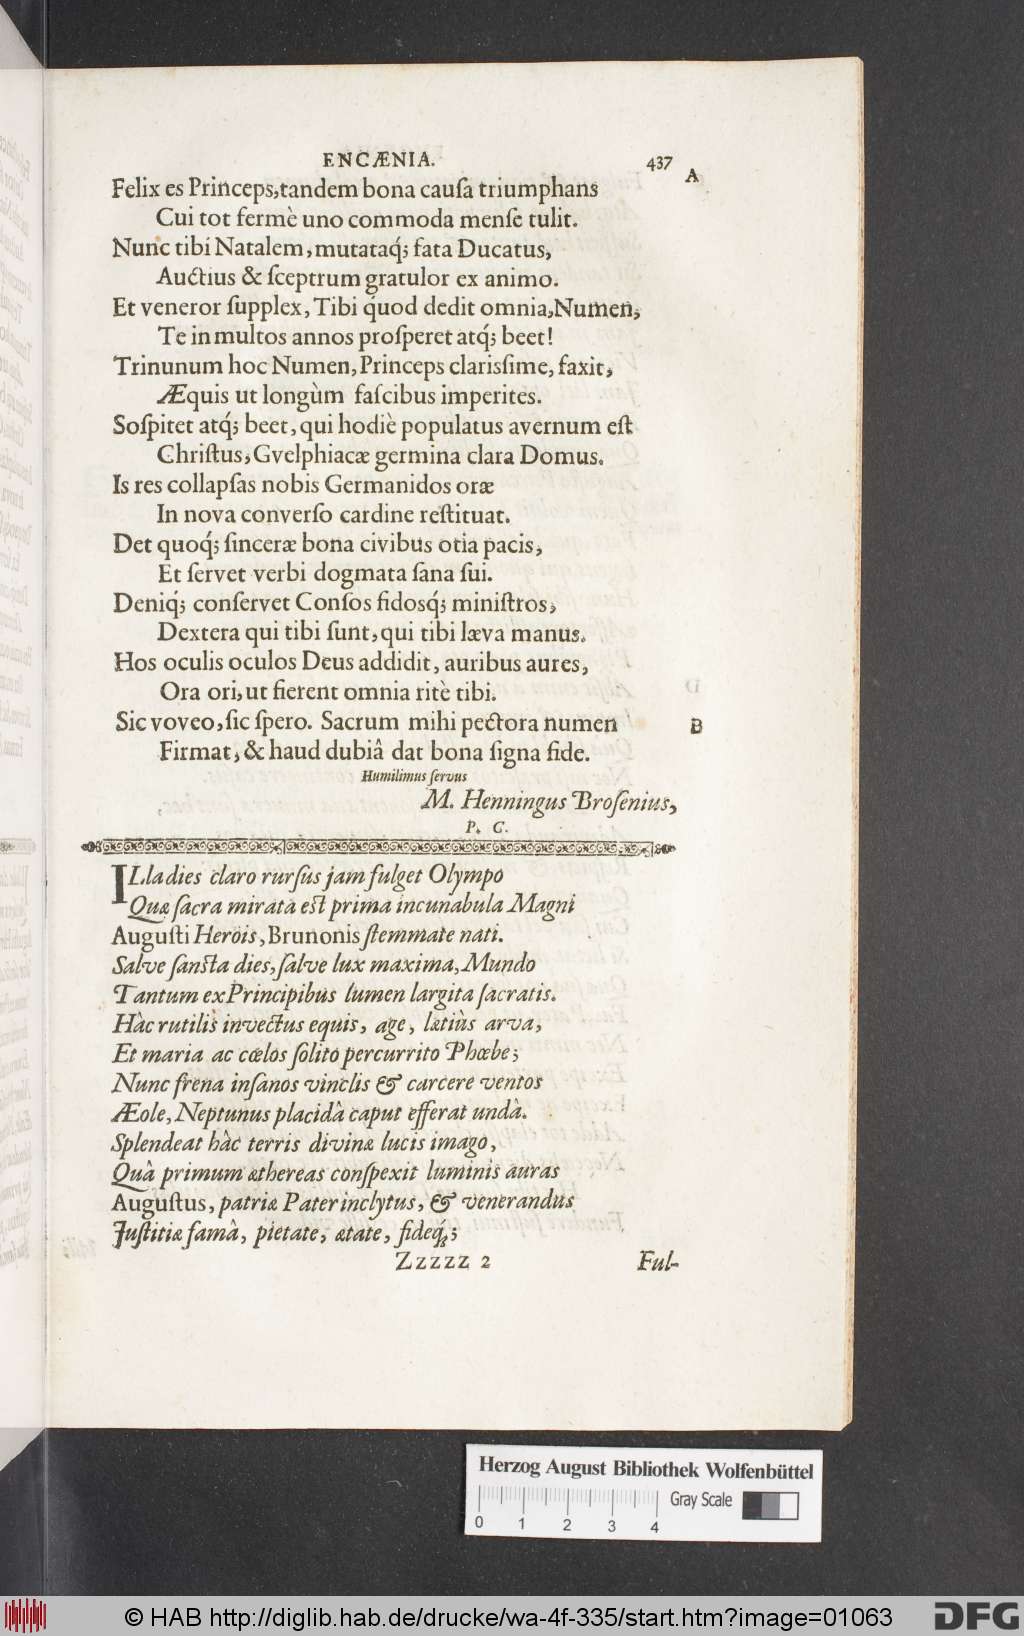 ENCÆNIA. 437
A
Felix es Princeps, tandem bona cauſa triumphans
Cui tot fermè uno commoda menſe tulit.
Nunc tibi Natalem, mutataq́; fata Ducatus,
Auctius & ſceptrum gratulor ex animo.
Et veneror ſupplex, Tibi q́uod dedit omnia, Numen,
Te in multos annos proſperet atq́; beet!
Trinunum hoc Numen, Princeps clariſsime, faxit,
Æquis ut longùm faſcibus imperites.
Soſpitet atq́; beet, qui hodiè populatus avernum eſt
Chriſtus, Gvelphiacæ germina clara Domus.
Is res collapſas nobis Germanidos oræ
In nova converſo cardine reſtituat.
Det quoq́; ſinceræ bona civibus otia pacis,
Et ſervet verbi dogmata ſana ſui.
Deniq́; conſervet Conſos fidosq́; miniſtros,
Dextera qui tibi ſunt, qui tibi læva manus.
Hos oculis oculos Deus addidit, auribus aures,
Ora ori, ut fierent omnia ritè tibi.
Sic voveo, ſic ſpero. Sacrum mihi pectora numen
B
Firmat, & haud dubiâ dat bona ſigna fide.
Humilimus ſervus
M. Henningus Broſenius,
P. C.
ILla dies claro rurſus jam fulget Olympo
Quæ ſacra mirata eſt prima incunabula Magni
Auguſti Herois, Brunonis ſtemmate nati.
Salve ſancta dies, ſalve lux maxima, Mundo
Tantum ex Principibus lumen largita ſacratis.
Hàc rutilis invectus equis, age, latiùs arva,
Et maria ac cœlos ſolito percurrito Phœbe;
Nunc frena inſanos vinclis & carcere ventos
Æole, Neptunus placidâ caput efferat undâ.
Splendeat hâc terris divinæ lucis imago,
Quâ primum æthereas conſpexit luminis auras
Auguſtus, patriæ Pater inclytus, & venerandus
Juſtitiæ famâ, pietate, ætate, fideq́;;
Zzzzz 2 Ful-
Herzog August Bibliothek Wolfenbüttel
Gray Scale
0 1 2 3 4
© HAB http://diglib.hab.de/drucke/wa-4f-335/start.htm?image=01063
DFG